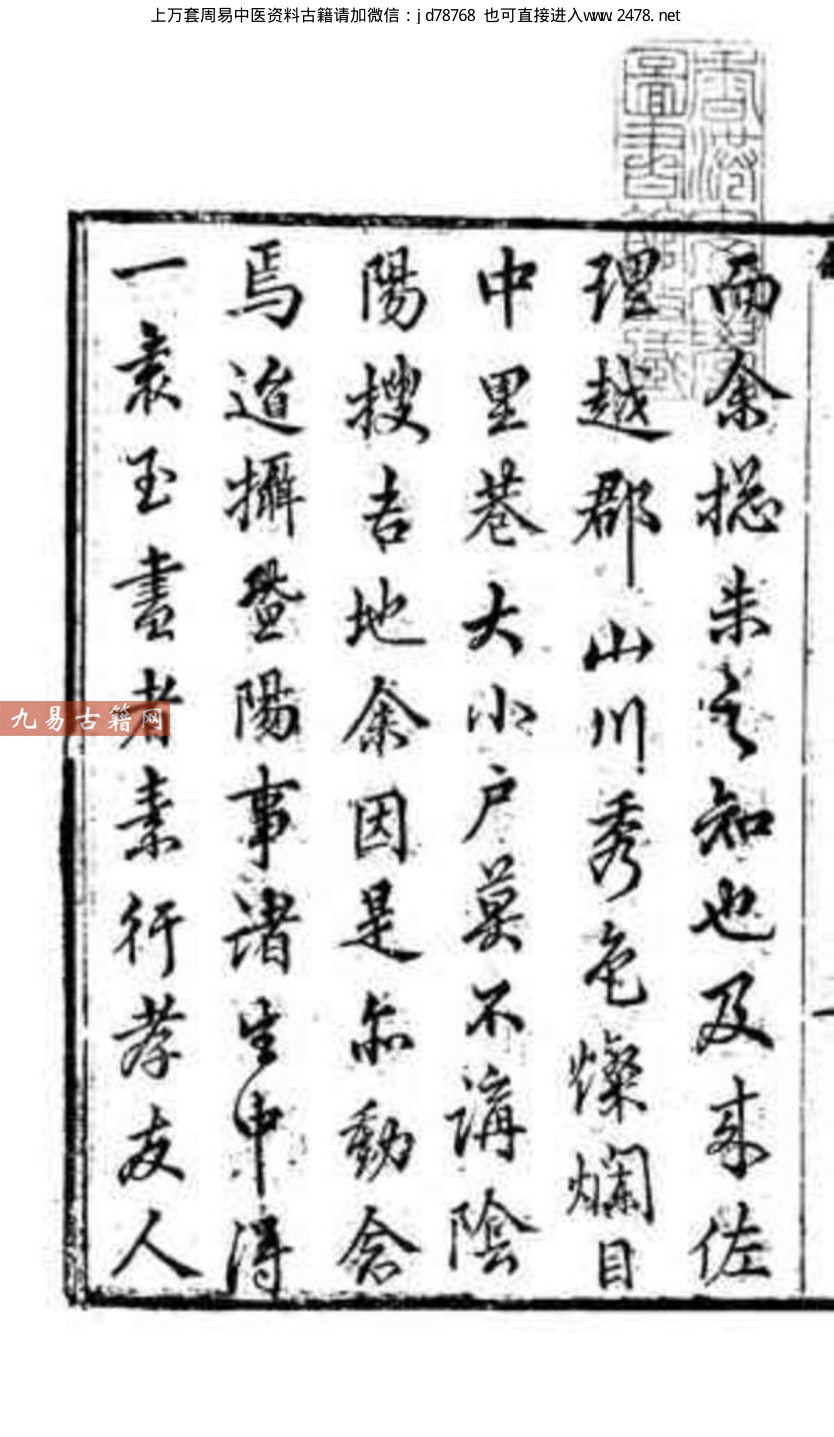 上万套周易中医资料古籍请加微信:jd78768 也可直接进入www.2478.net
而余揔未之知也及来佐
理越郡山川秀色燦爛目
中里巷大小户莫不講陰
陽搜吉地余因是亦動念
焉迨攝暨陽事諸生中得
一袁玉書者素行孝友人
九易古籍网